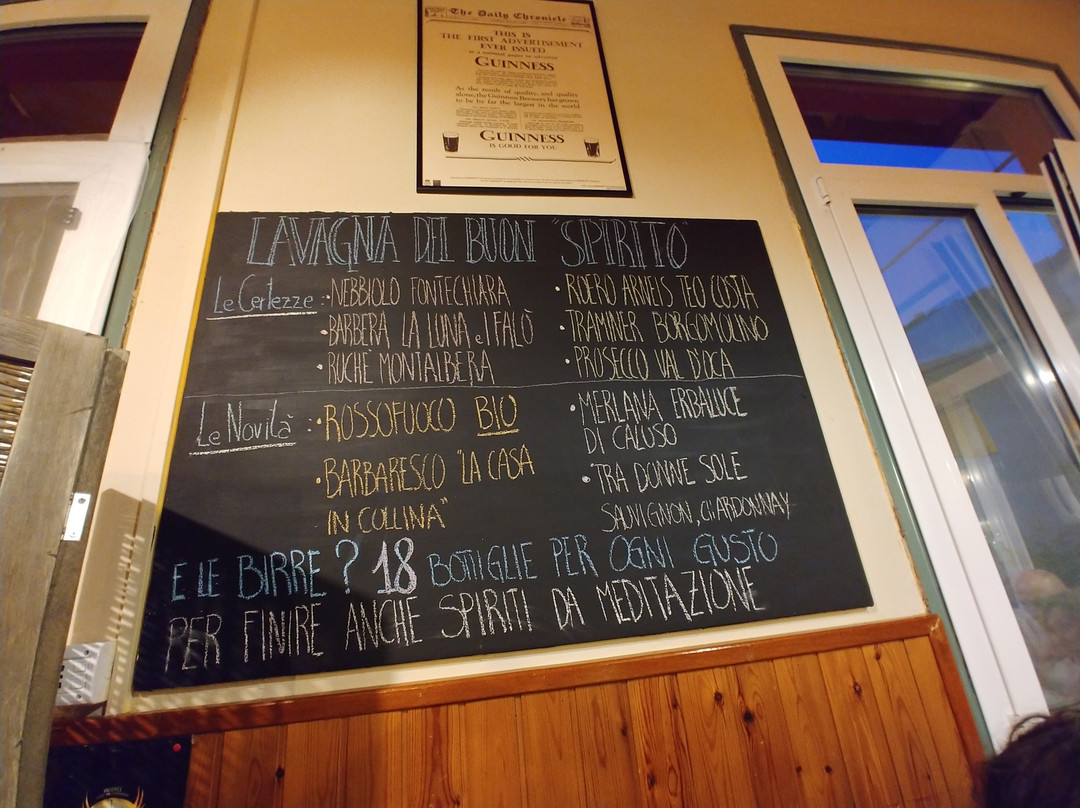 The Daily Chronicle
THIS IS
THE FIRST ADVERTISEMENT
EVER ISSUED
GUINNESS
As the result of quality, and quality
alone, the Guinness Brewery has grown
to be by far the largest in the world
GUINNESS
IS GOOD FOR YOU
LAVAGNA DEI BUONI "SPIRITO"
Le Certezze : • NEBBIOLO FONTECHIARA
• BARBERA LA LUNA e I FALÒ
• RUCHÈ MONTALBERA
• ROERO ARNEIS TEO COSTA
• TRAMINER BORGOMOLINO
• PROSECCO VAL D'OCA
Le Novità : • ROSSOFUOCO BIO
• BARBARESCO "LA CASA
IN COLLINA"
• MERLANA ERBALUCE
DI CALUSO
• TRA DONNE SOLE
SAUVIGNON, CHARDONNAY
E LE BIRRE ? 18 BOTTIGLIE PER OGNI GUSTO
PER FINIRE ANCHE SPIRITI DA MEDITAZIONE